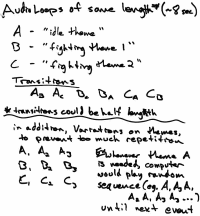 Audio Loops of same length* (~8 sec)
A - "idle theme"
B - "fighting theme 1"
C - "fighting theme 2"
Transitions
AB AC BC BA CA CB
* transitions could be half length
in addition, Variations on themes,
to prevent too much repetition
A1 A2 A3
B1 B2 B3
C1 C2 C3
Whenever theme A
is needed, computer
would play random
sequence (eg. A1 A3 A1
A2 A1 A3 A3 ...)
until next event